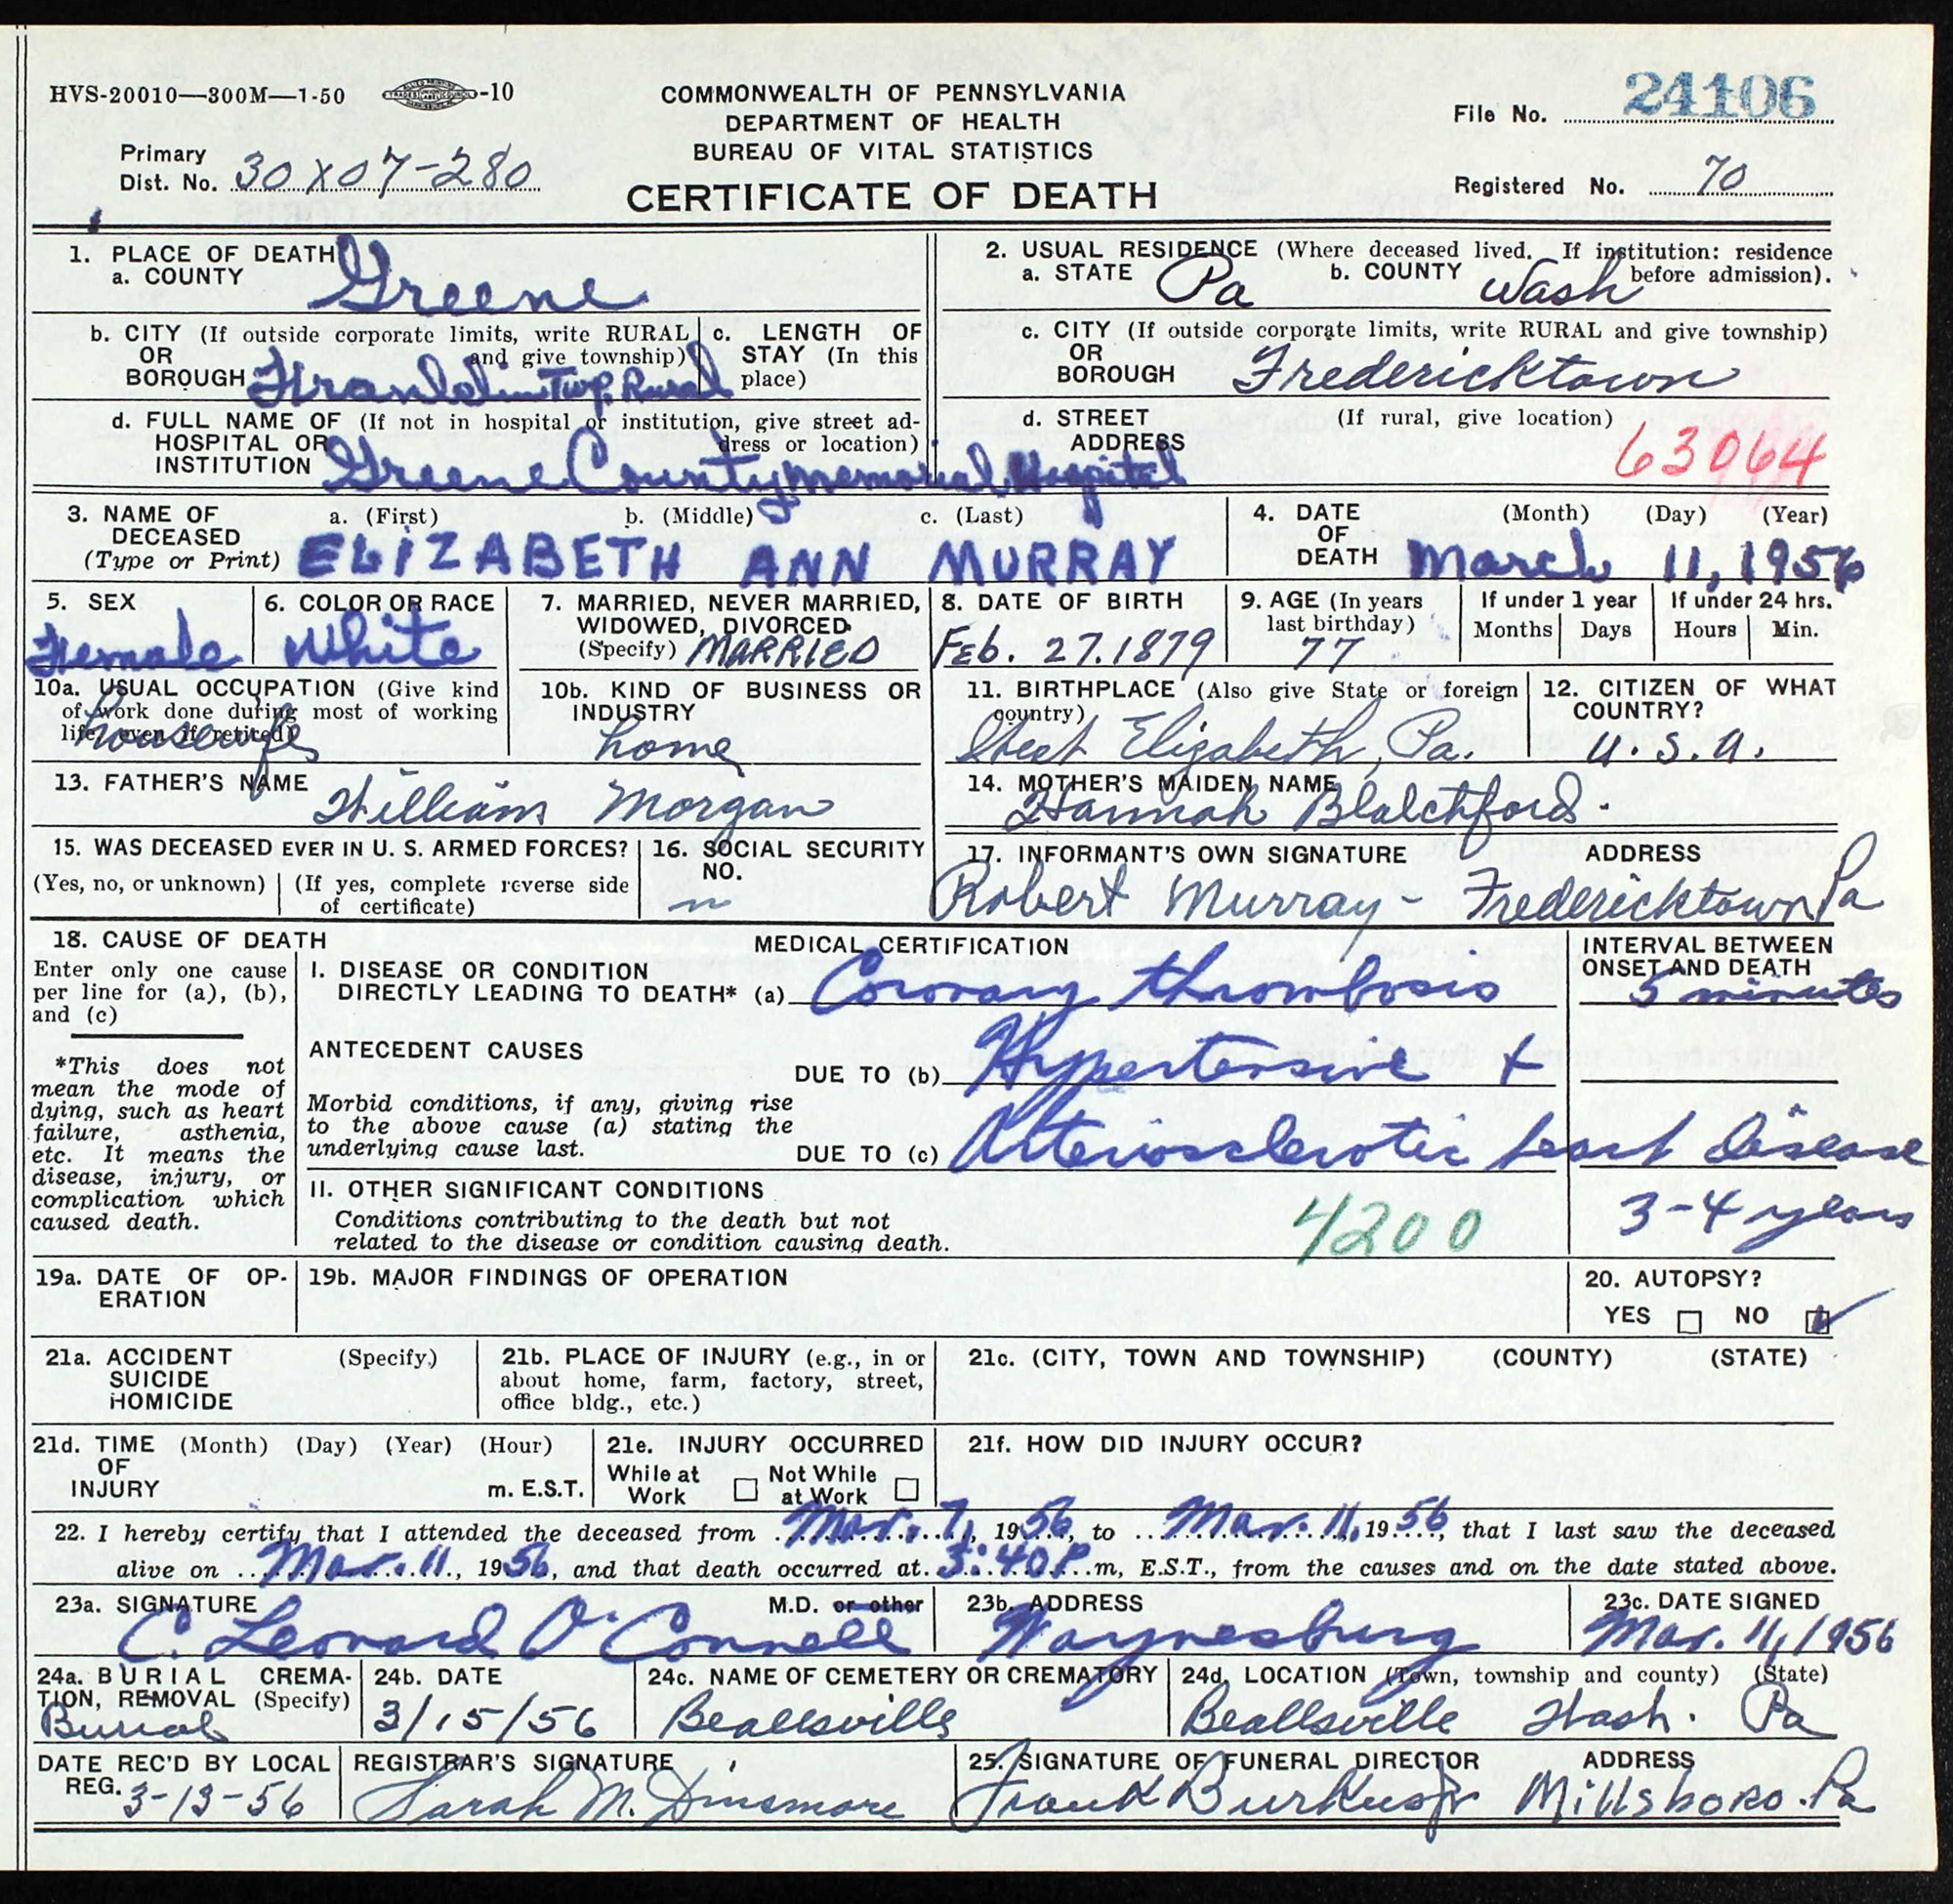 HVS-20010—300M—1-50 -10
COMMONWEALTH OF PENNSYLVANIA
DEPARTMENT OF HEALTH
BUREAU OF VITAL STATISTICS
CERTIFICATE OF DEATH
File No. 24106
Primary
Dist. No. 30X07-280
Registered No. 70
1. PLACE OF DEATH
a. COUNTY Greene
2. USUAL RESIDENCE (Where deceased lived. If institution: residence
before admission).
a. STATE Pa b. COUNTY Wash
b. CITY (If outside corporate limits, write RURAL
OR and give township)
BOROUGH Franklin Twp. Rural
c. LENGTH OF
STAY (In this
place)
c. CITY (If outside corporate limits, write RURAL and give township)
OR
BOROUGH Fredericktown
d. FULL NAME OF (If not in hospital or institution, give street ad-
HOSPITAL OR dress or location)
INSTITUTION Greene County Memorial Hospital
d. STREET (If rural, give location)
ADDRESS
63064
3. NAME OF
DECEASED
(Type or Print)
a. (First) b. (Middle) c. (Last)
ELIZABETH ANN MURRAY
4. DATE (Month) (Day) (Year)
OF
DEATH March 11, 1956
5. SEX
Female
6. COLOR OR RACE
White
7. MARRIED, NEVER MARRIED,
WIDOWED, DIVORCED
(Specify) MARRIED
8. DATE OF BIRTH
Feb. 27. 1879
9. AGE (In years
last birthday)
77
If under 1 year
Months Days
If under 24 hrs.
Hours Min.
10a. USUAL OCCUPATION (Give kind
of work done during most of working
life, even if retired)
housewife
10b. KIND OF BUSINESS OR
INDUSTRY
home
11. BIRTHPLACE (Also give State or foreign
country)
West Elizabeth, Pa.
12. CITIZEN OF WHAT
COUNTRY?
U.S.A.
13. FATHER'S NAME
William Morgan
14. MOTHER'S MAIDEN NAME
Hannah Blalchford.
15. WAS DECEASED EVER IN U. S. ARMED FORCES?
(Yes, no, or unknown) (If yes, complete reverse side
of certificate)
16. SOCIAL SECURITY
NO.
17. INFORMANT'S OWN SIGNATURE ADDRESS
Robert Murray - Fredericktown Pa
18. CAUSE OF DEATH
Enter only one cause
per line for (a), (b),
and (c)
*This does not
mean the mode of
dying, such as heart
failure, asthenia,
etc. It means the
disease, injury, or
complication which
caused death.
MEDICAL CERTIFICATION
I. DISEASE OR CONDITION
DIRECTLY LEADING TO DEATH* (a) Coronary thrombosis
ANTECEDENT CAUSES
DUE TO (b) Hypertensive +
Morbid conditions, if any, giving rise
to the above cause (a) stating the
underlying cause last.
DUE TO (c) Arteriosclerotic heart disease
II. OTHER SIGNIFICANT CONDITIONS
Conditions contributing to the death but not
related to the disease or condition causing death.
4200
INTERVAL BETWEEN
ONSET AND DEATH
5 minutes
3-4 years
19a. DATE OF OP-
ERATION
19b. MAJOR FINDINGS OF OPERATION
20. AUTOPSY?
YES NO
21a. ACCIDENT (Specify)
SUICIDE
HOMICIDE
21b. PLACE OF INJURY (e.g., in or
about home, farm, factory, street,
office bldg., etc.)
21c. (CITY, TOWN AND TOWNSHIP) (COUNTY) (STATE)
21d. TIME (Month) (Day) (Year) (Hour)
OF
INJURY m. E.S.T.
21e. INJURY OCCURRED
While at Work Not While at Work
21f. HOW DID INJURY OCCUR?
22. I hereby certify that I attended the deceased from Mar. 7, 1956, to Mar. 11, 1956, that I last saw the deceased
alive on Mar. 11, 1956, and that death occurred at 3:40 P.m, E.S.T., from the causes and on the date stated above.
23a. SIGNATURE M.D. or other
C. Leonard O'Connell
23b. ADDRESS
Waynesburg
23c. DATE SIGNED
Mar. 11, 1956
24a. BURIAL CREMA-
TION, REMOVAL (Specify)
Burial
24b. DATE
3/15/56
24c. NAME OF CEMETERY OR CREMATORY
Beallsville
24d. LOCATION (Town, township and county) (State)
Beallsville Wash. Pa
DATE REC'D BY LOCAL
REG. 3-13-56
REGISTRAR'S SIGNATURE
Sarah M. Dinsmore
25. SIGNATURE OF FUNERAL DIRECTOR ADDRESS
Frank Burkus Jr Millsboro. Pa